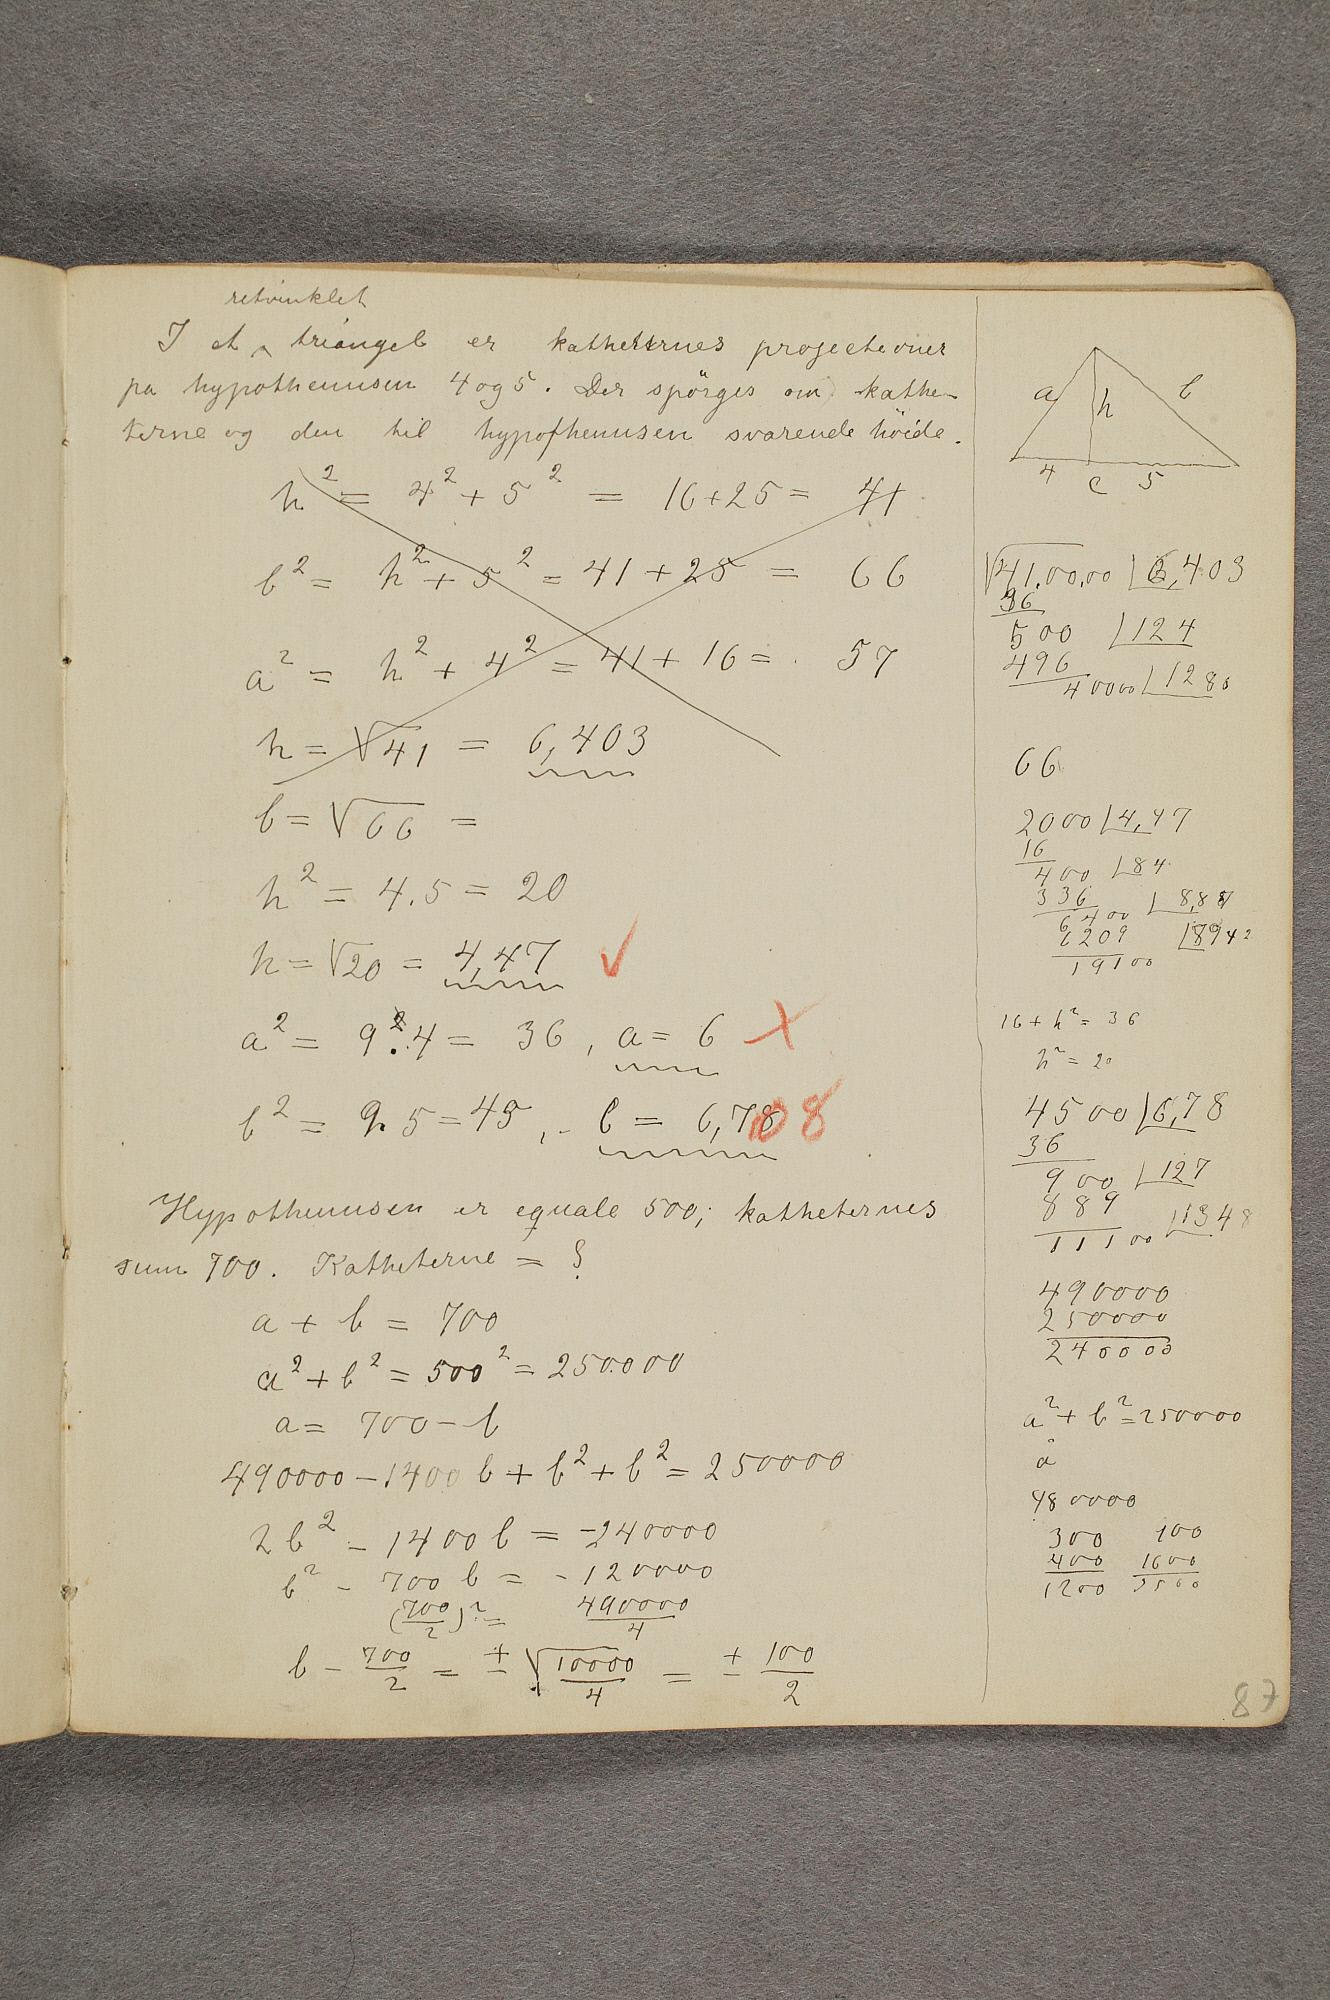 retvinklet
I et ^ triangel er katheternes projectioner
pa hypothenusen 4 og 5. Der spörges om kathe-
terne og den til hypothenusen svarende höide.
h² = 4² + 5² = 16+25 = 41
b² = h² + 5² = 41 + 25 = 66
a² = h² + 4² = 41 + 16 = 57
h = √41 = 6,403
b = √66 =
h² = 4.5 = 20
h = √20 = 4,47 ✓
a² = 9.4 = 36, a = 6
b² = 9.5 = 45, b = 6,78 08
Hypothenusen er equale 500; katheternes
sum 700. Katheterne = ?
a + b = 700
a² + b² = 500² = 250000
a = 700 - b
490000 - 1400 b + b² + b² = 250000
2b² - 1400 b = -240000
b² - 700 b = -120000
(700/2)² = 490000/4
b - 700/2 = ± √10000/4 = ± 100/2
a h b
4 c 5
√41,00,00 | 6,403
36
500 | 124
496
40000 | 1280
66
2000 | 4,47
16
400 | 84
336
6400 | 8,87
6209 | 8942
19100
16 + h² = 36
h² = 20
4500 | 6,78
36
900 | 127
889
11100 | 1348
490000
250000
240000
a² + b² = 250000
a
480000
300 100
400 1600
1200
87